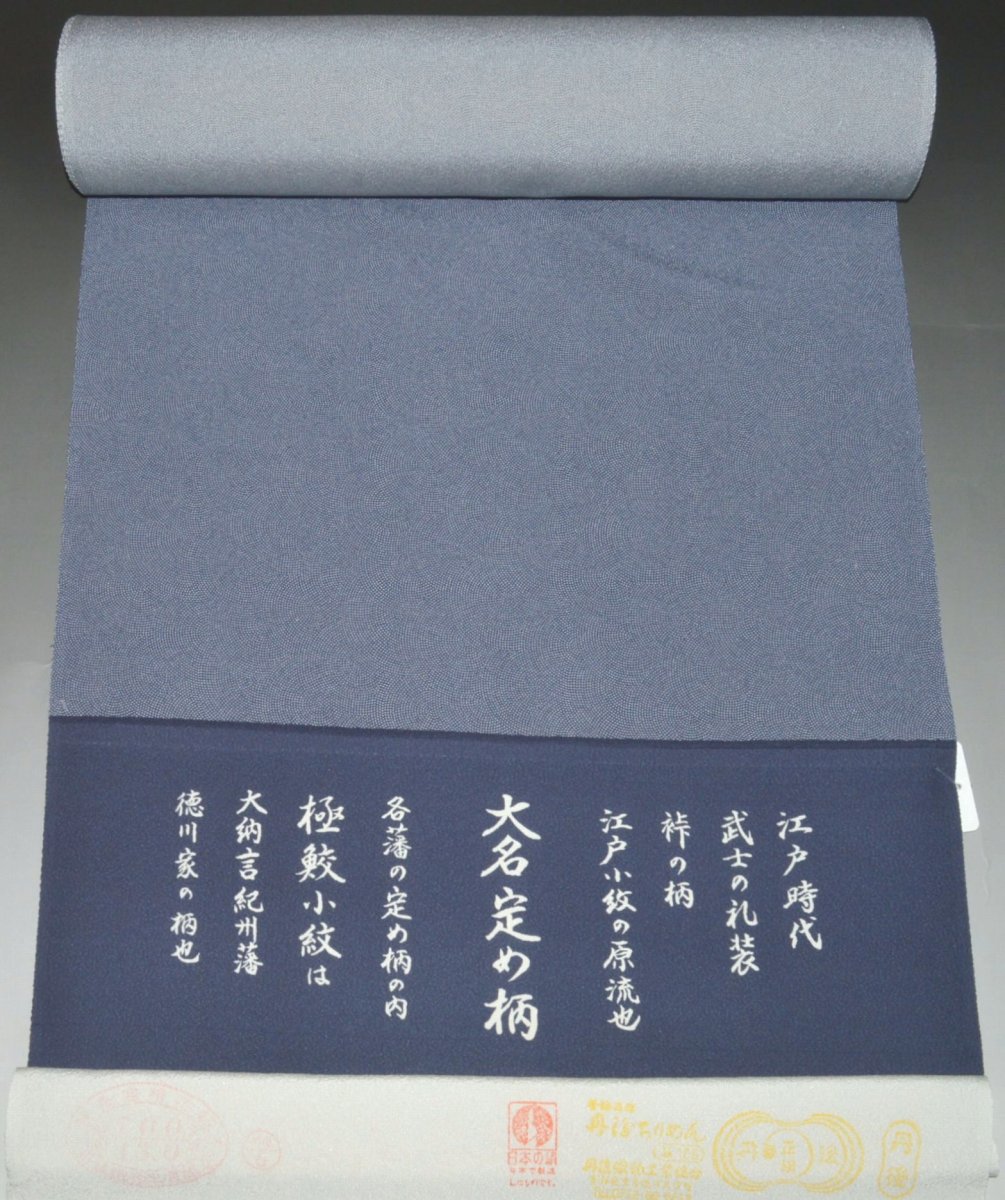 江戸時代
武士の礼装
裃の柄
江戸小紋の原流也
大名定め柄
各藩の定め柄の内
極鮫小紋は
大納言紀州藩
徳川家の柄也
日本の絹
丹後ちりめん
丹後